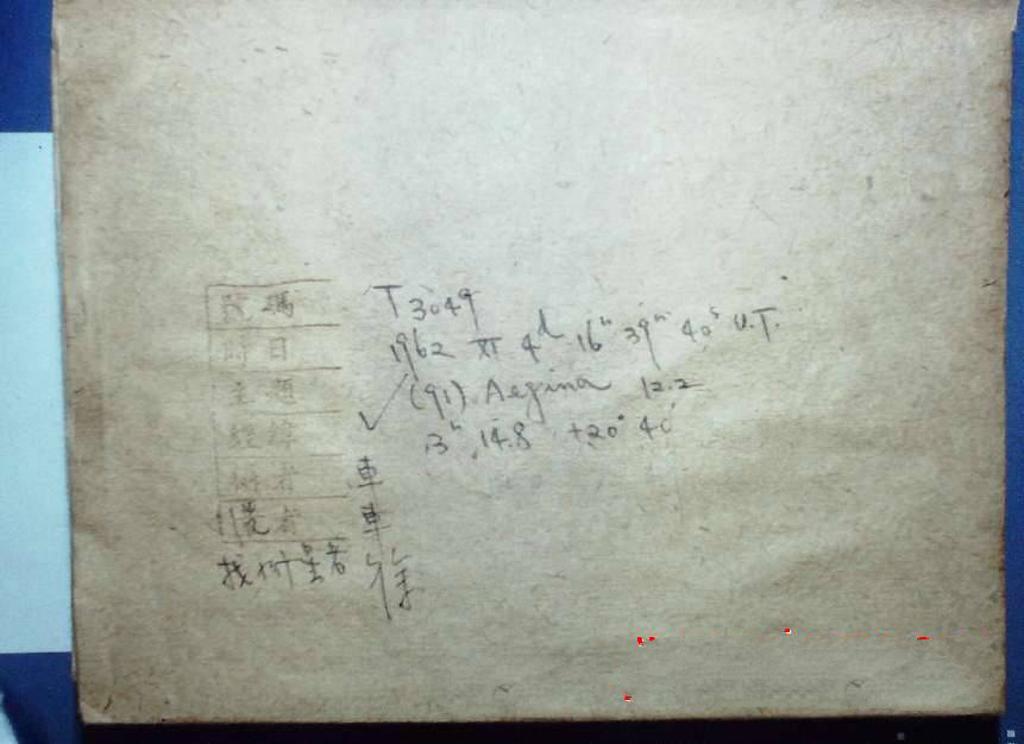 號碼 T 3049
時日 1962 XI 4d 16h 39m 40s U.T.
主題 (91) Aegina 12.2
經緯 3h 14.8 +20° 40'
車
者 車
找 星者 徐